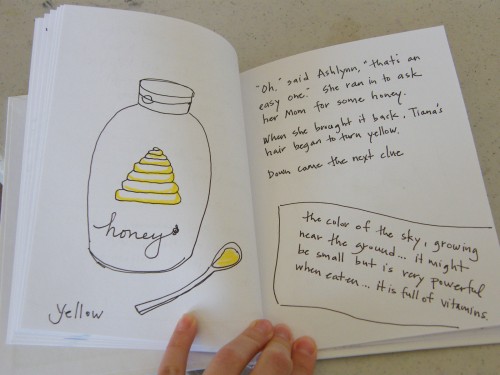 honey
yellow
"Oh," said Ashlynn, "that's an
easy one." She ran in to ask
her Mom for some honey.
When she brought it back, Tiana's
hair began to turn yellow.
Down came the next clue
the color of the sky, growing
near the ground... it might
be small but is very powerful
when eaten... It is full of vitamins.